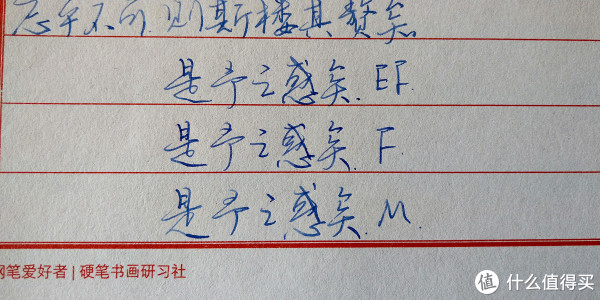 忘乎不可,则斯楼其赘矣。
是予之惑矣. EF.
是予之惑矣. F.
是予之惑矣. M.
钢笔爱好者 | 硬笔书画研习社
值 什么值得买